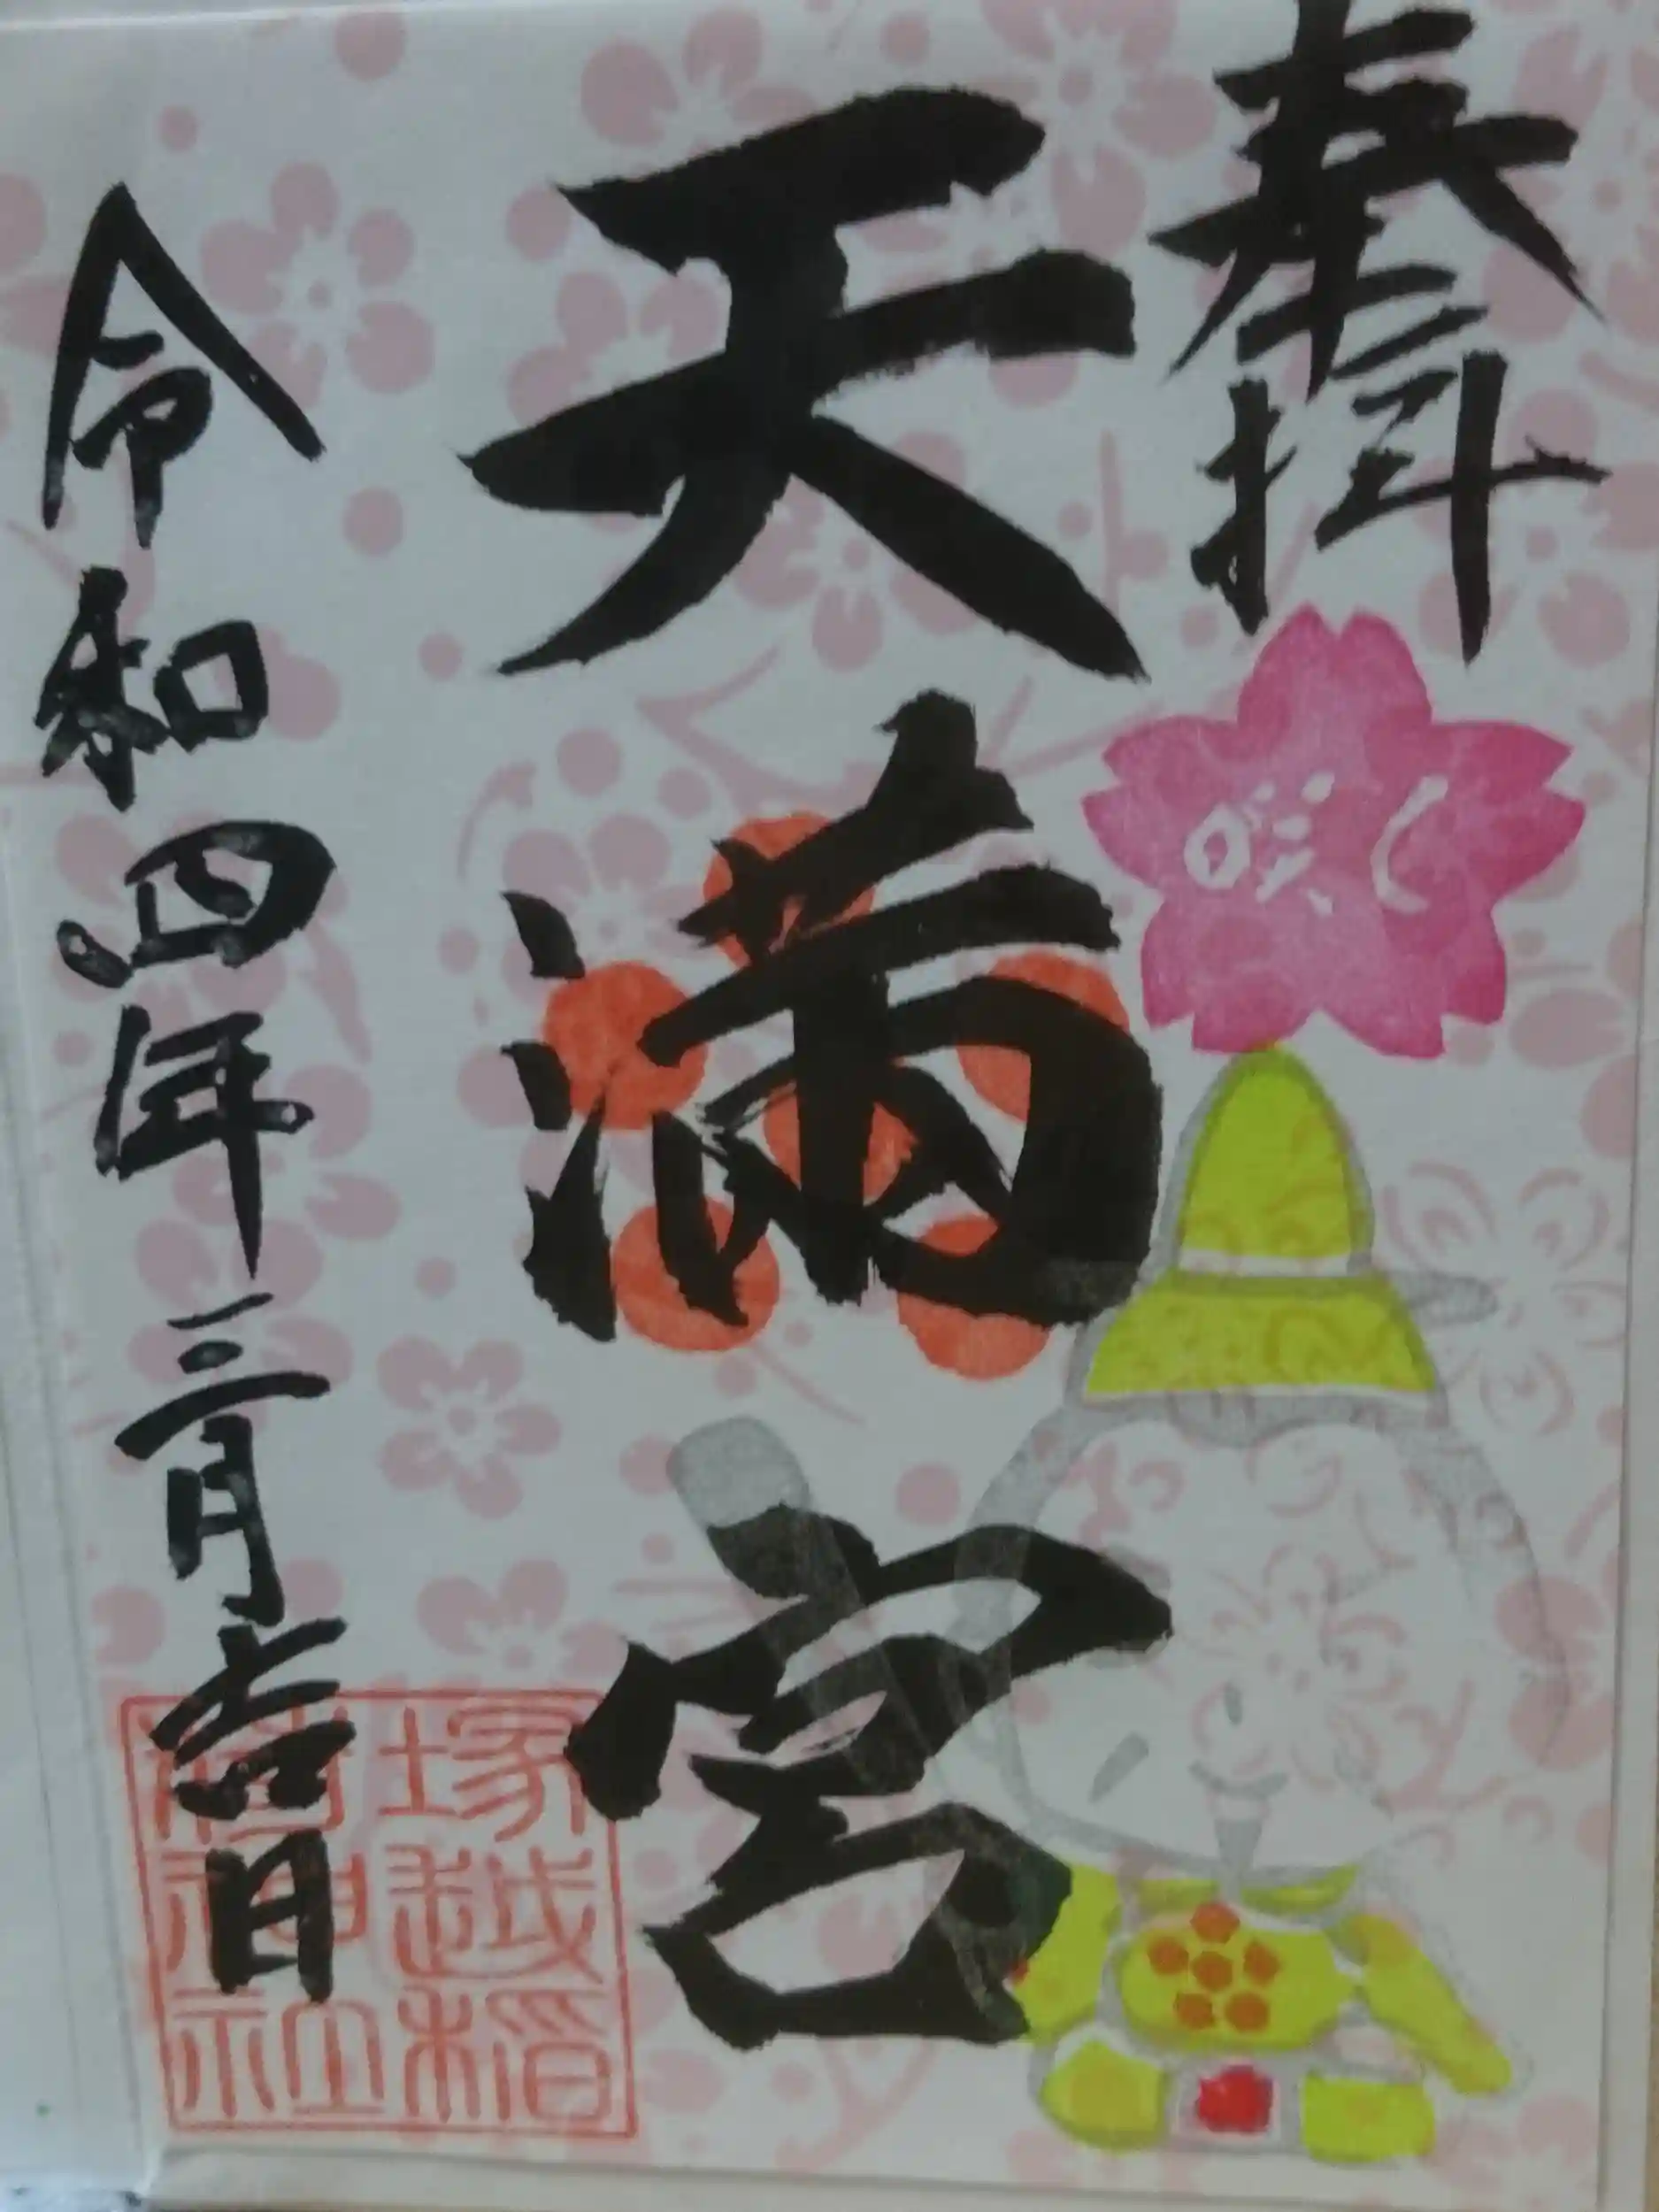 奉拝
咲く
天満宮
令和四年三月吉日
塚越稲
荷神社